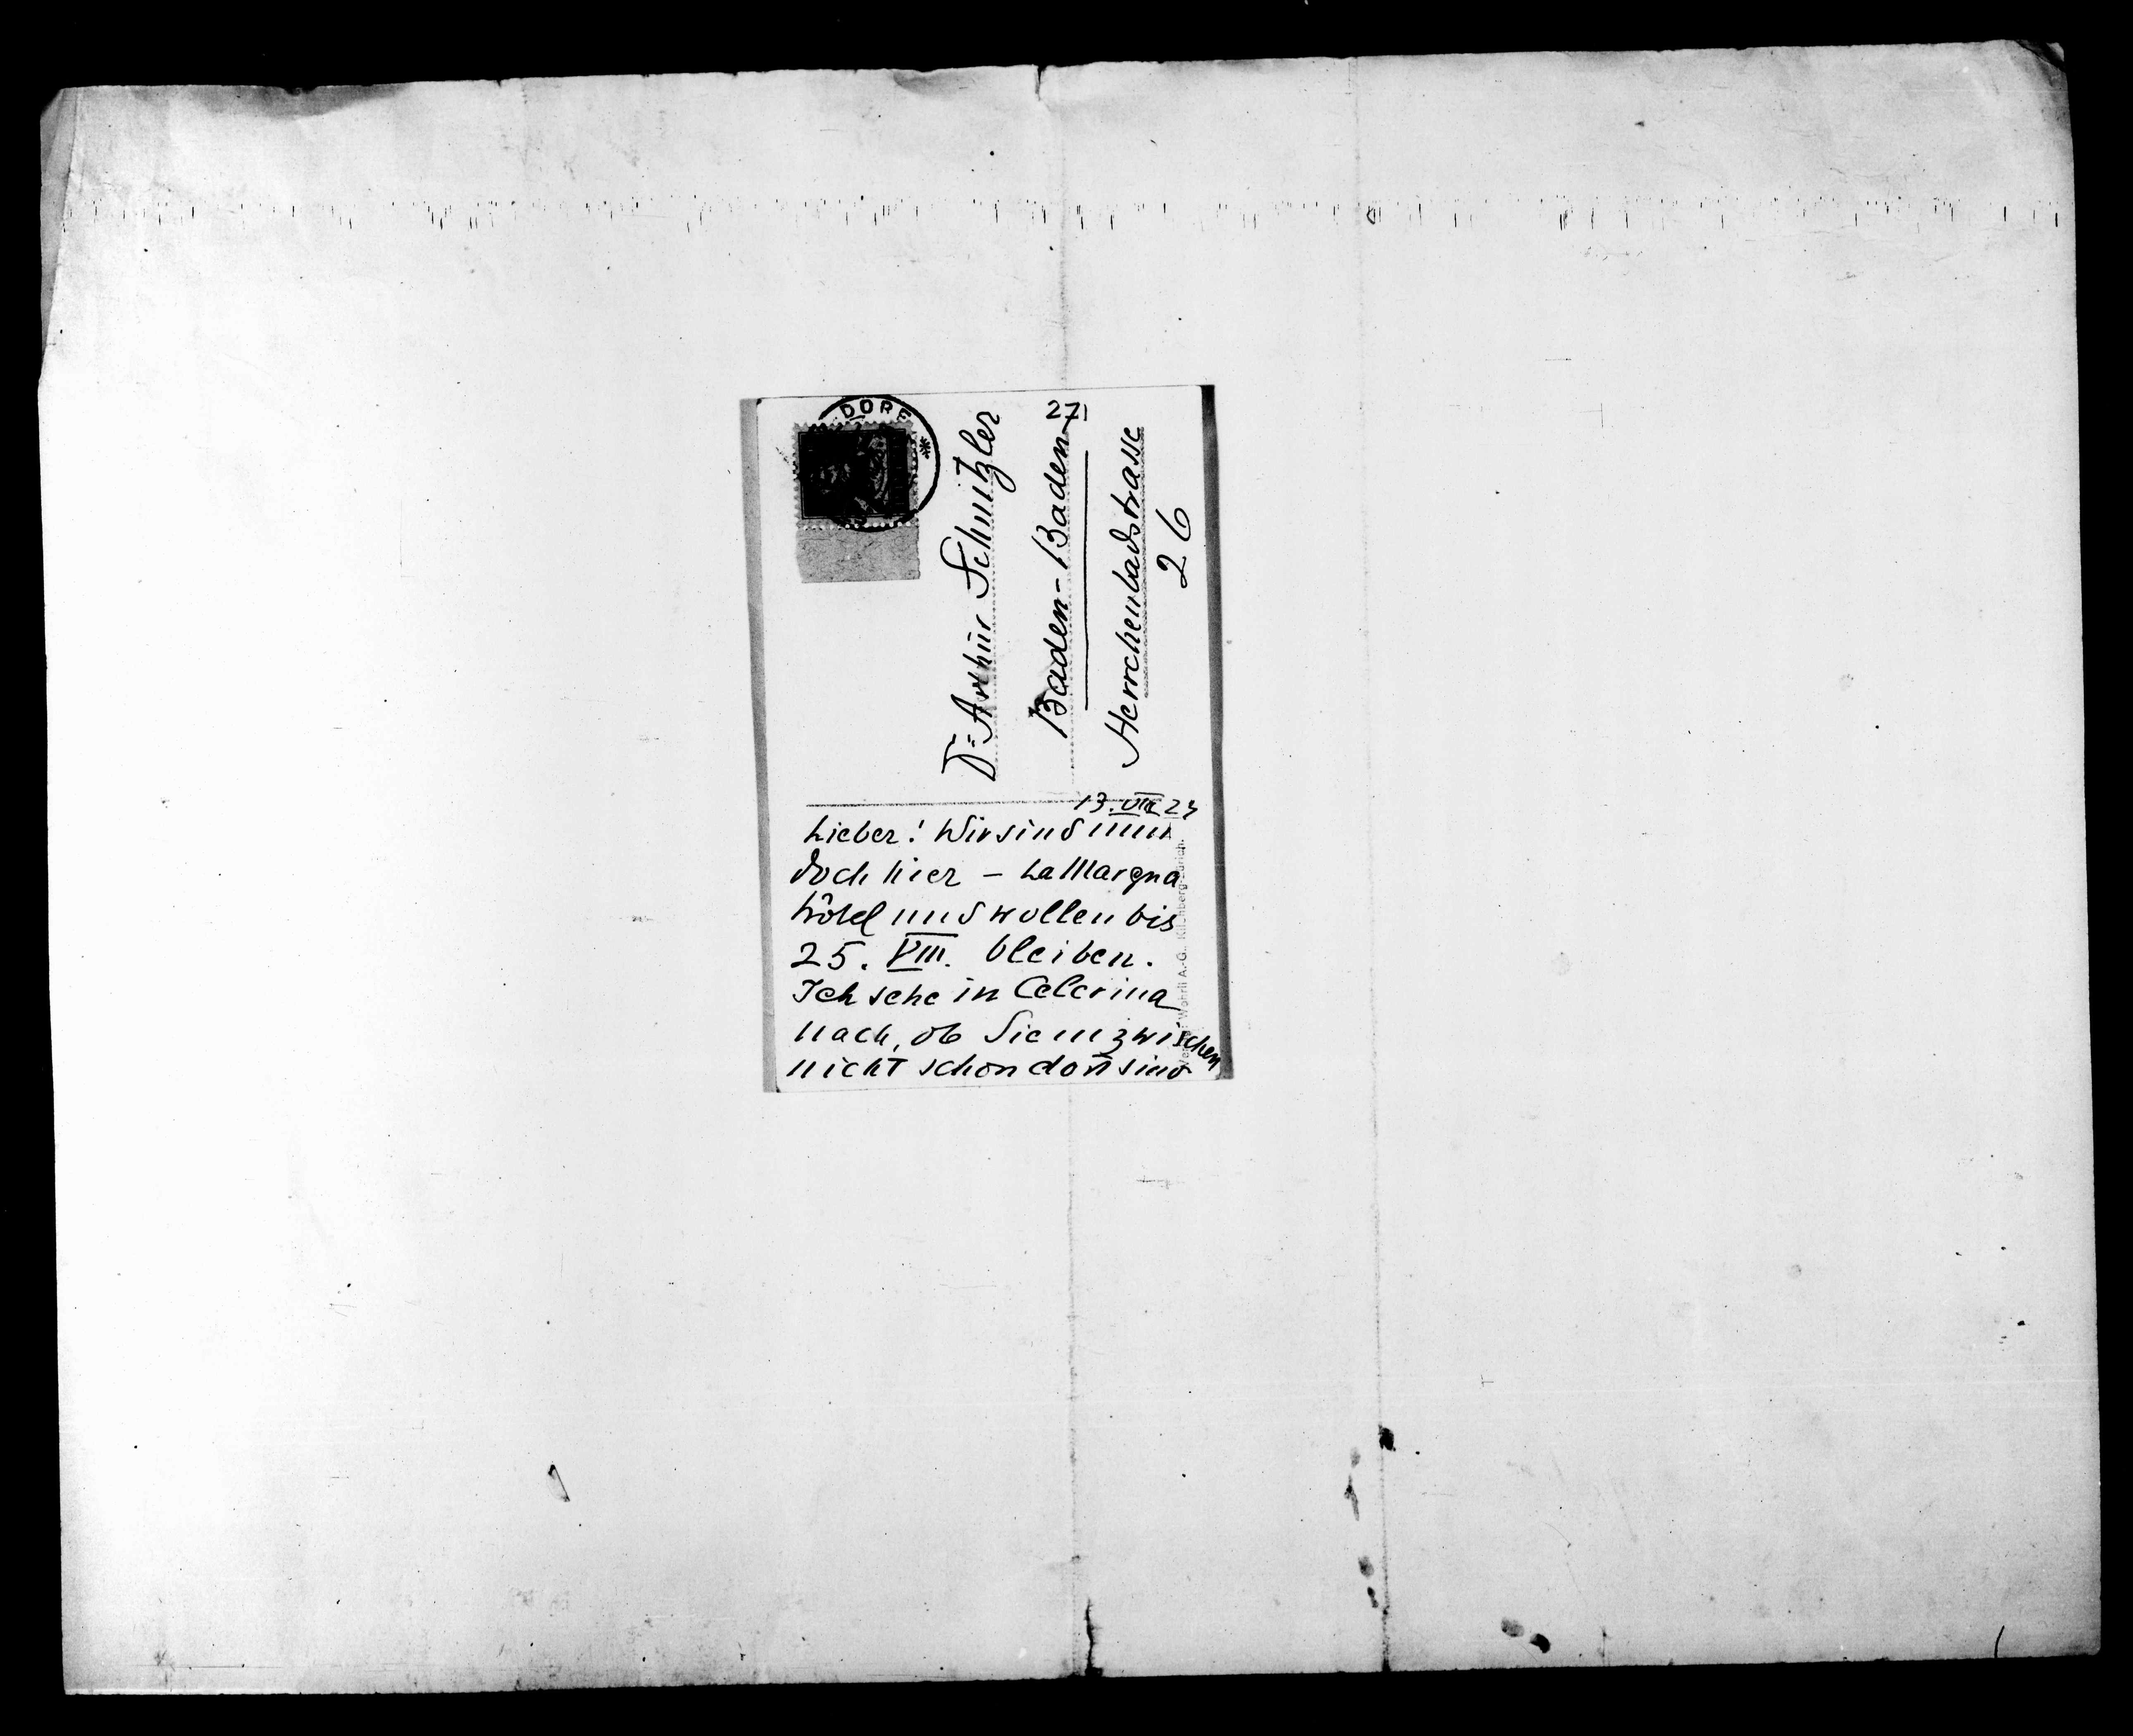 DORF
Dr Arthur Schnitzler
271
Baden-Baden
Herrchenbadstrasse
26
13. VIII 23
Lieber! Wir sind nun
doch hier – La Margna
hôtel und wollen bis
25. VIII. bleiben.
Ich sehe in Celerina
nach, ob Sie inzwischen
nicht schon dort sind
Wehrli A.-G., Kilchberg-Zürich.